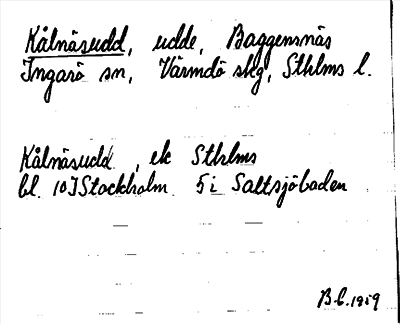 Kålnäsudd, udde, Baggensnäs
Ingarö sn, Värmdö skg, Sthlms l.
Kålnäsudd, ek Sthlms
bl. 10 I Stockholm 5 i Saltsjöbaden
B.C. 1959